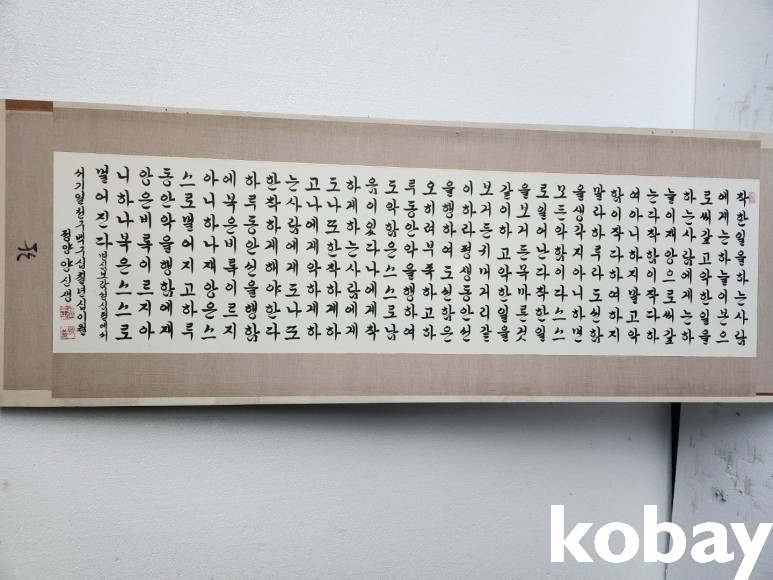 착한일을하는사람
에게는하늘이복으
로써갚고악한일을
하는사람에게는하
늘이재앙으로써갚
는다착함이작다하
여아니하지말고악
함이작다하여하지
말라하루라도선함
을생각지아니하면
모든악함이다스스
로일어난다착한일
을보거든목마른것
같이하고악한일을
보거든귀머거리같
이하라평생동안선
을행하여도선함은
오히려부족하고하
루동안악을행하여
도악함은스스로남
음이있다나에게착
하게하는사람에게
도나또한착하게하
고나에게악하게하
는사람에게도나또
한착하게해야한다
하루동안선을행함
에복은비록이르지
아니하나재앙은스
스로멀어지고하루
동안악을행함에재
앙은비록이르지아
니하나복은스스로
멀어진다
안신생
kobay